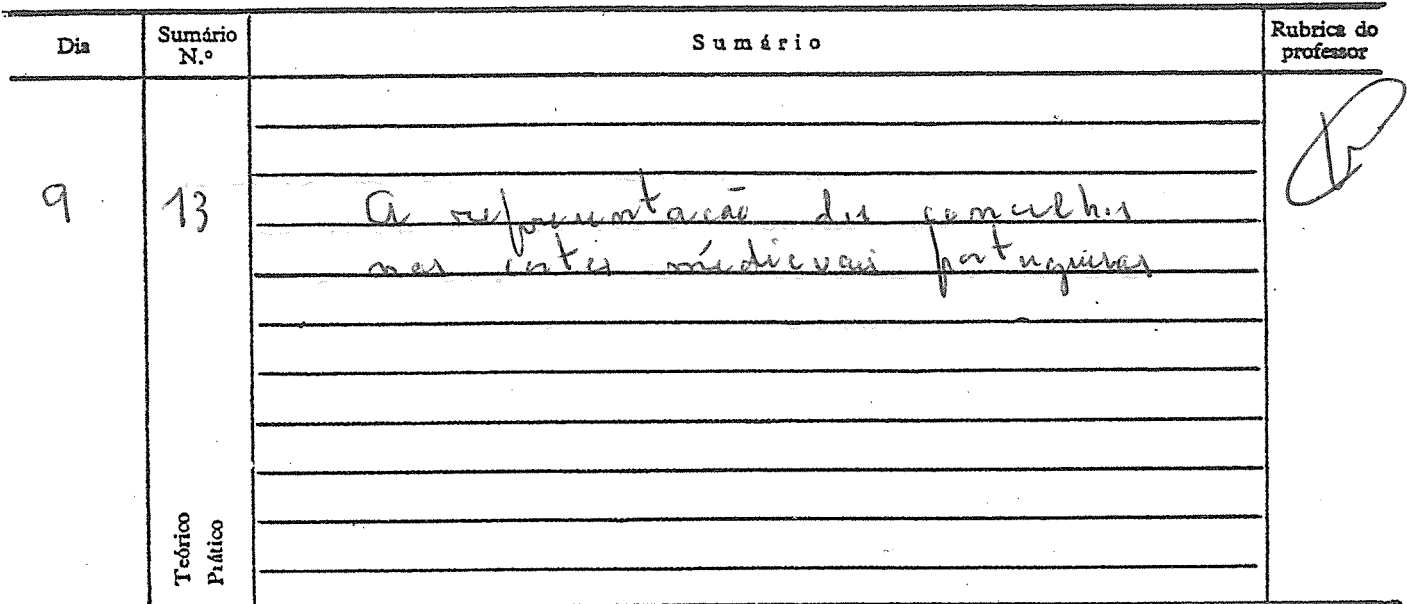 Dia Sumário N.º Sumário Rubrica do professor
9 13 A representação dos concelhos
nas cortes medievais portuguesas
Teórico
Prático